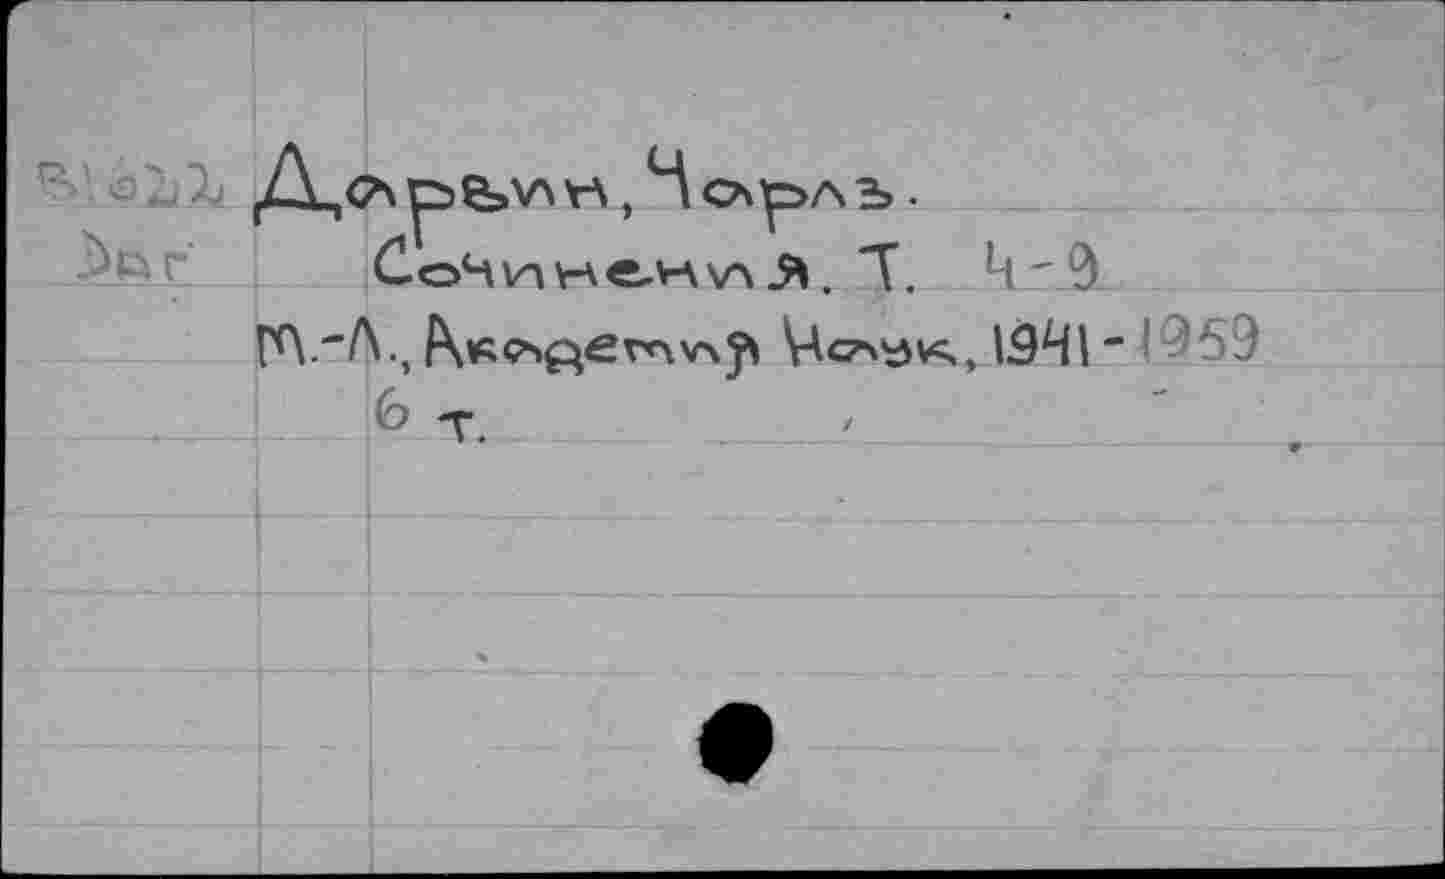 Дарвин, Чарлъ.
Сочинения. Т. 4-9
М.-Л., Академия Наук, 1941-1959
6 т.